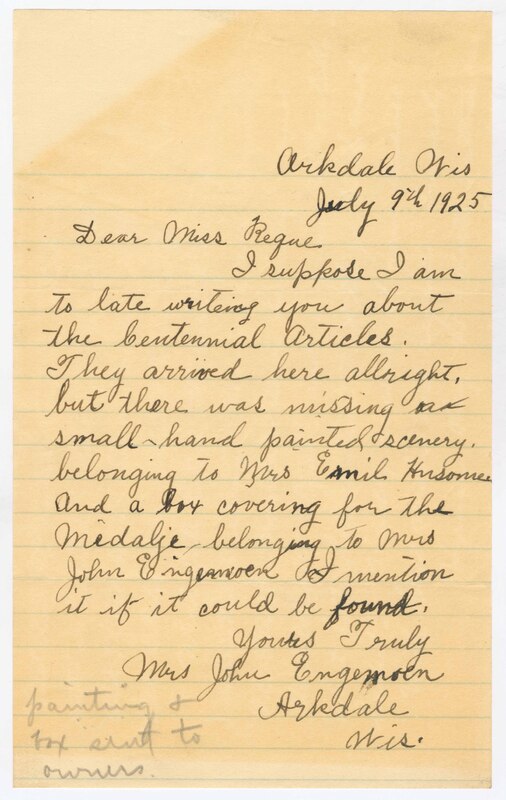 Arkdale Wis
July 9th 1925
Dear Miss Regue
I suppose I am
to late writing you about
the Centennial Articles.
They arrived here allright,
but there was missing a
small hand painted scenery.
belonging to Mrs Emil
And a box covering for the
Medalje belonging to Mrs
John Engemoen I mention
it if it could be found.
Yours Truly
Mrs John Engemoen
Arkdale
Wis.
painting &
box sent to
owners.